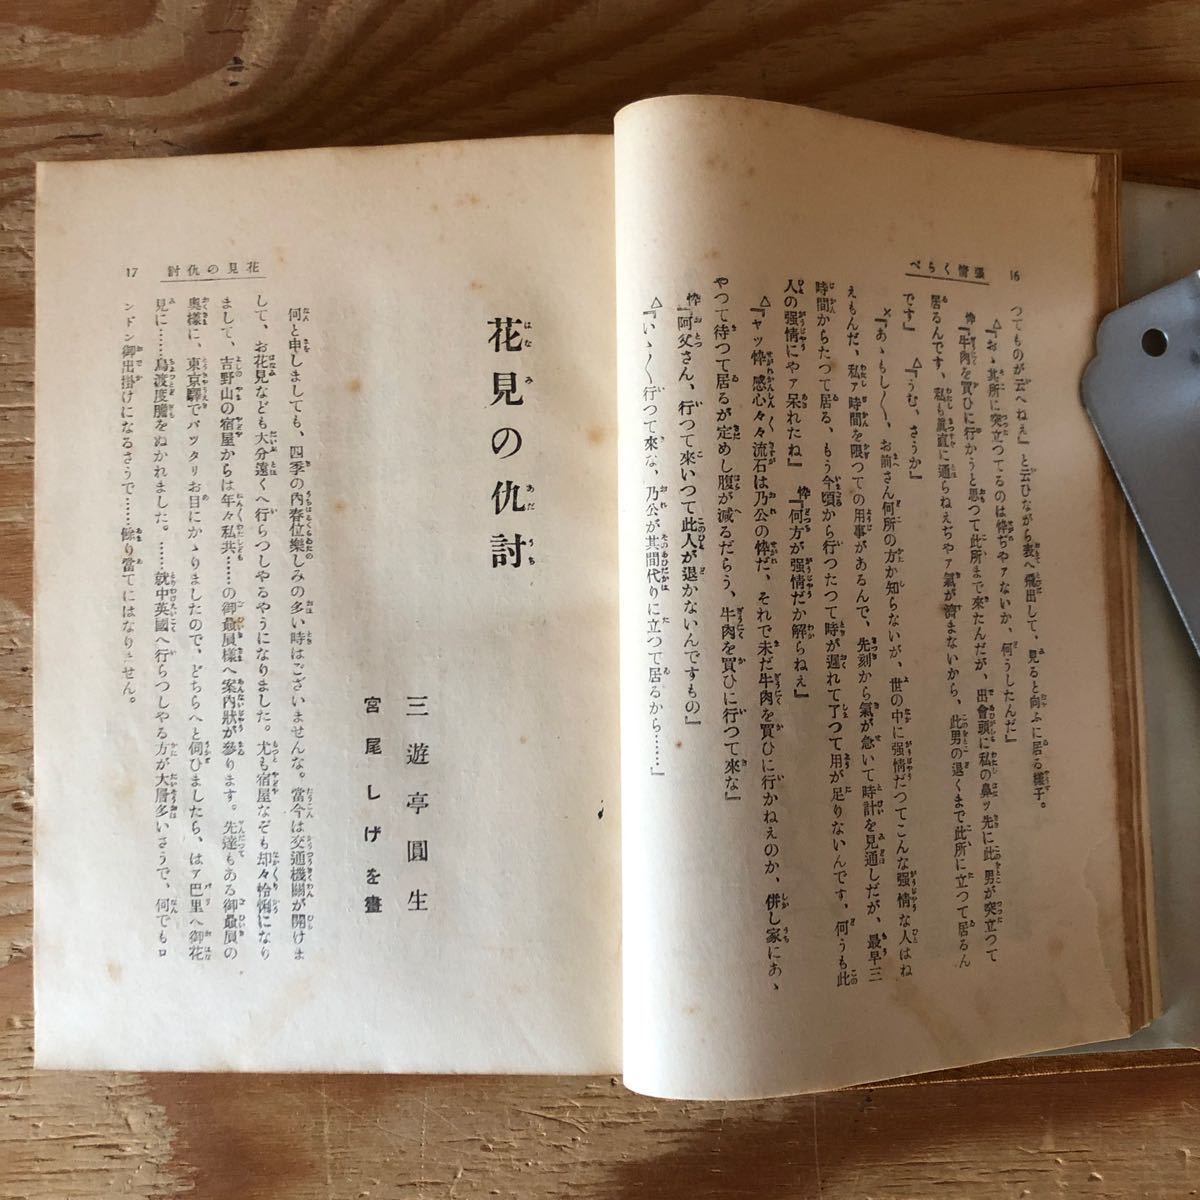 强情くらべ
16
つてものが云へねえ』と云ひながら表へ飛出して、見ると向ふに居る樣子。
△『おゝ其所に突立つてるのは忰ぢやアないか、何うしたんだ』
忰『牛肉を買ひに行かうと思つて此所まで來たんだが、出會頭に私の鼻ッ先に此男が突立つて
居るんです、私も眞直に通らねえぢやァ氣が濟まないから、此男の退くまで此所に立つて居るん
です』　△『うむ、さうか』
×『あゝもし〱、お前さん何所の方か知らないが、世の中に强情だつてこんな强情な人はね
えもんだ、私ァ時間を限つての用事があるんで、先刻から氣が急いて時計を見通しだが、最早三
時間からたつて居る、もう今頃から行つたつて時が遲れて了つて用が足りないんです、何うも此
人の强情にやァ呆れたね』　忰『何方が强情だか解らねえ』
△『ヤッ忰、感心々々流石は乃公の忰だ、それで未だ牛肉を買ひに行かねえのか、併し家にあゝ
やつて待つて居るが定めし腹が減るだらう、牛肉を買ひに行つて來な』
忰『阿父さん、行つて來いつて此人が退かないんですもの』
△『いゝ〱行つて來な、乃公が其間代りに立つて居るから……』
花見の仇討
17
花見の仇討
はなみ　あだうち
三遊亭圓生
宮尾しげを畫
何と申しましても、四季の內春位樂しみの多い時はございませんな。當今は交通機關が開けま
して、お花見なども大分遠くへ行らつしやるやうになりました。尤も宿屋なぞも却々怜悧になり
まして、吉野山の宿屋からは年々私共……の御贔屓樣へ案內狀が參ります。先達もある御贔屓の
奧樣に、東京驛でバッタリお目にかゝりましたので、どちらへと伺ひましたら、はァ巴里へ御花
見に……鳥渡度膽をぬかれました。……就中英國へ行らつしやる方が大層多いさうで、何でもロ
ンドン御出掛けになるさうで……餘り當てにはなりません。